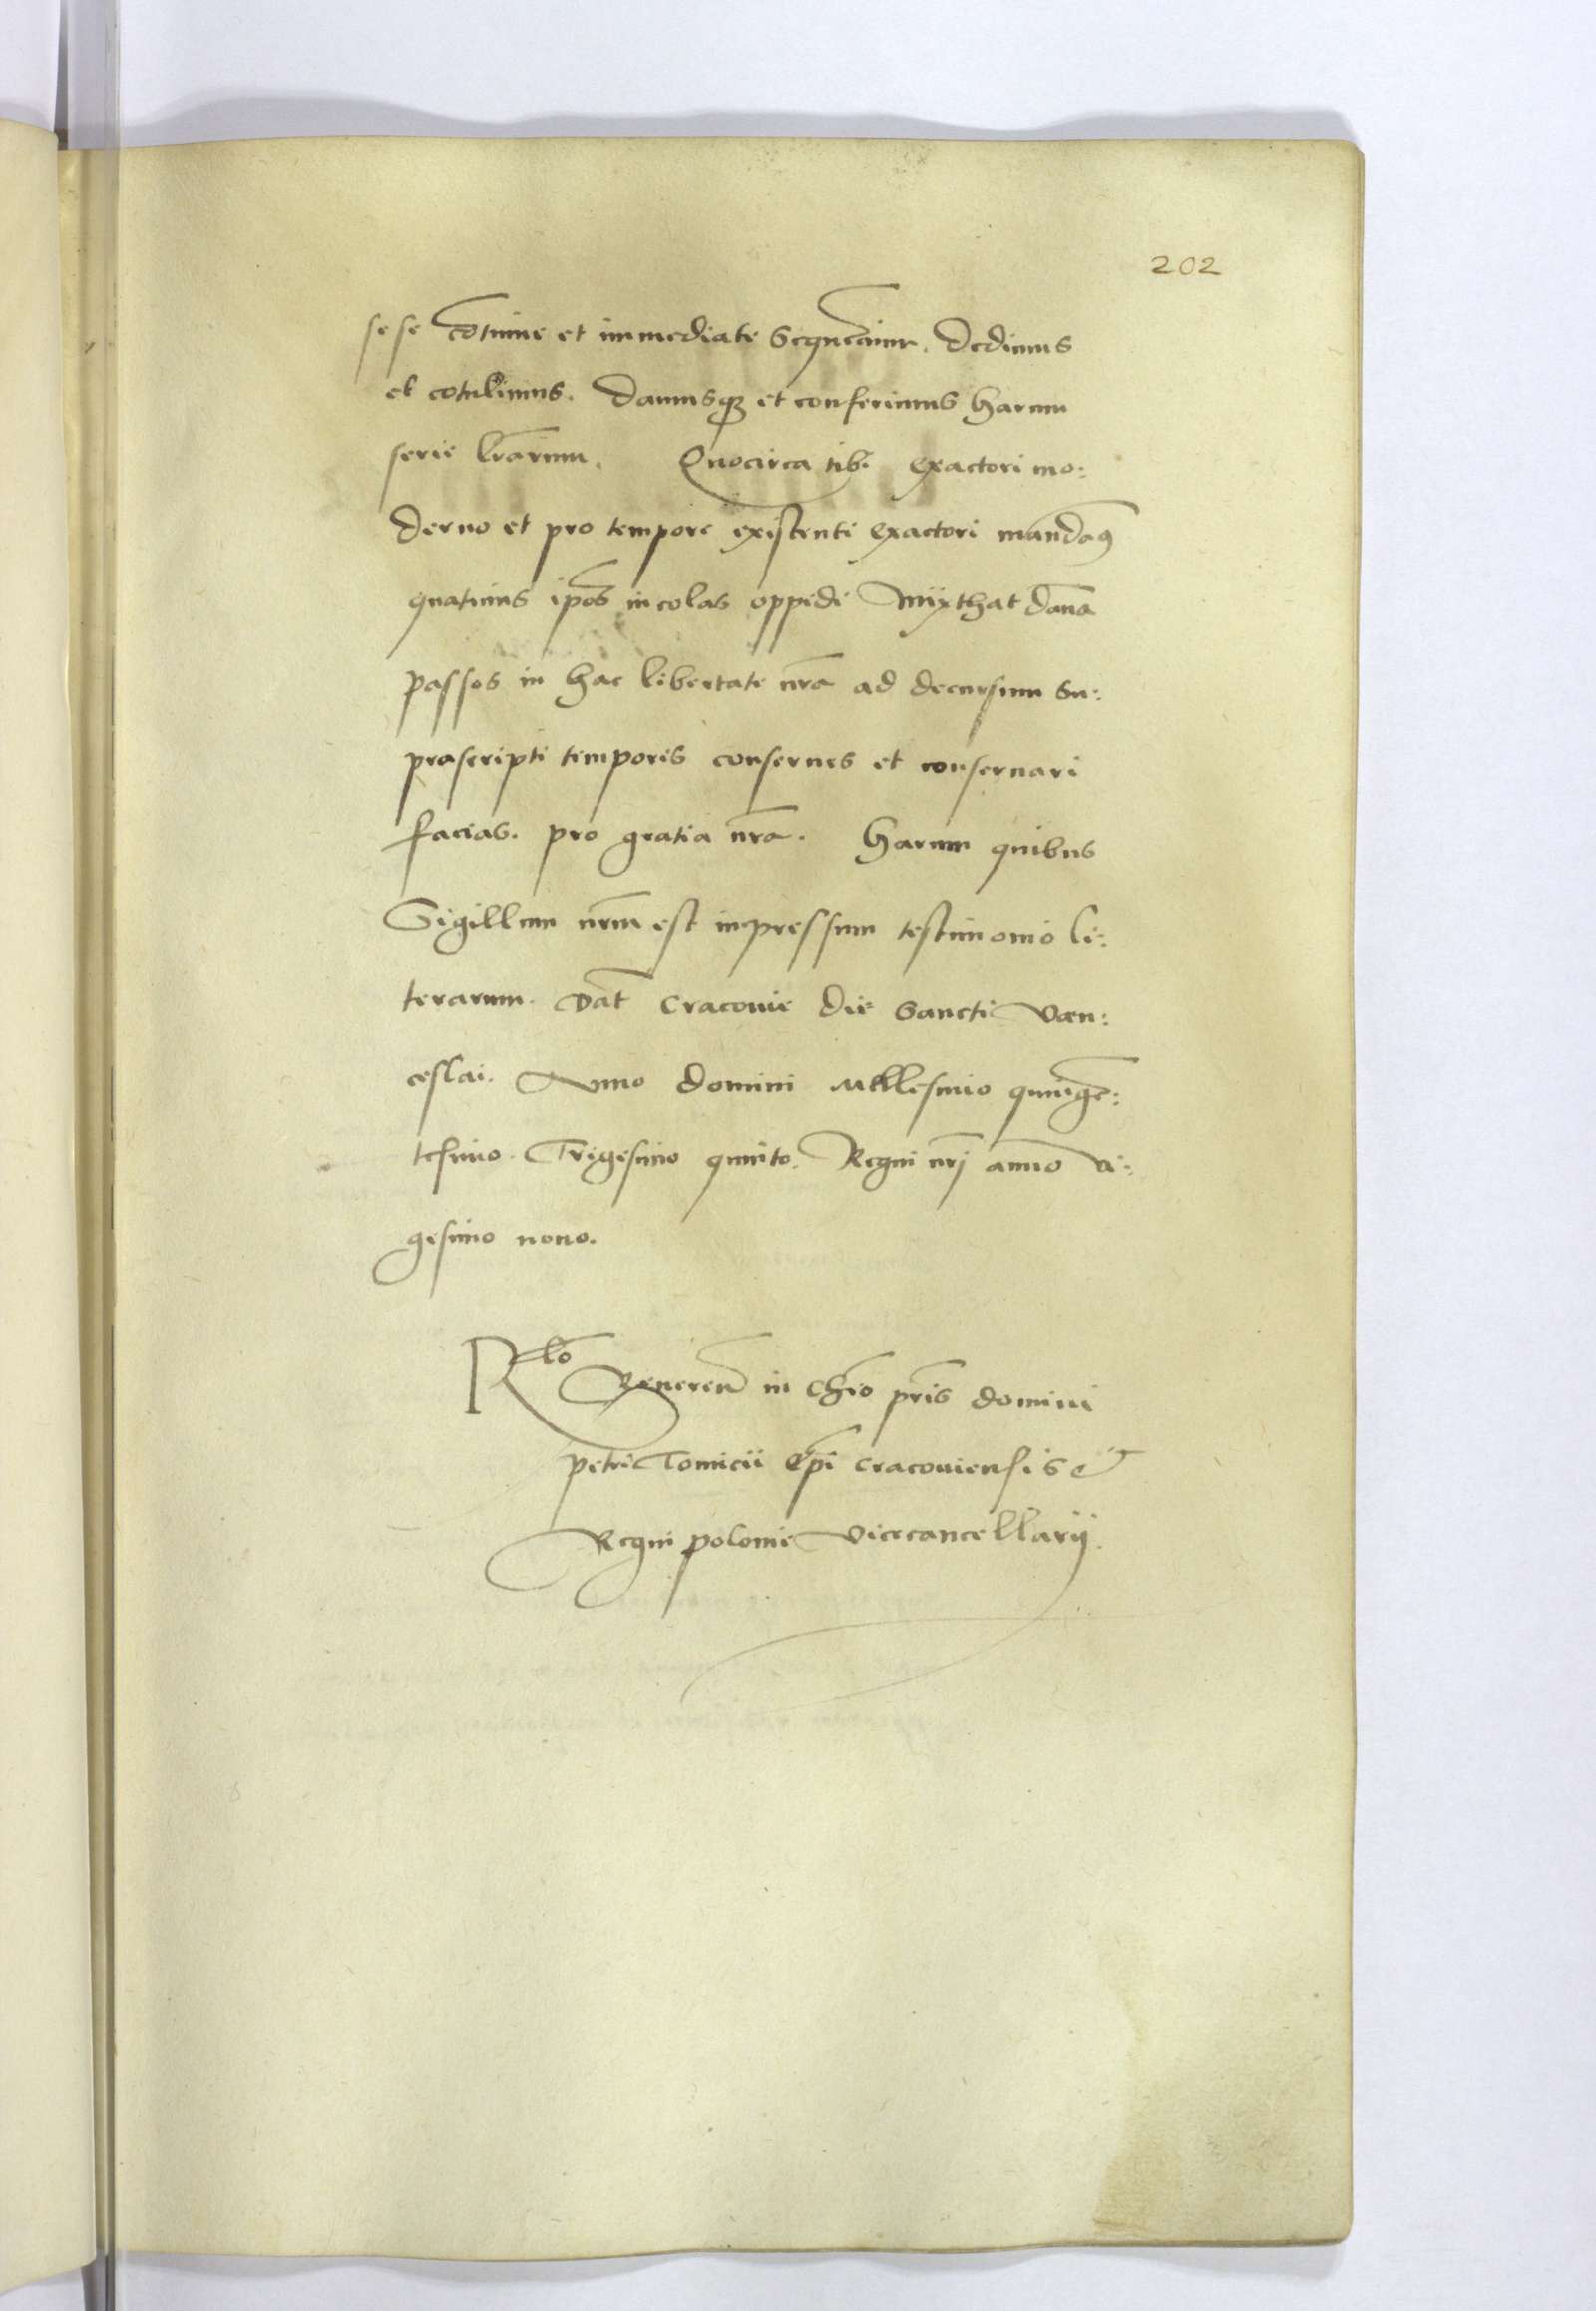 202
sese cōtinue et immediate sequēnium. Dedimus
et cōtulimus. Damusqz et conferimus harum
serie lr̄arum. Quocirca tibi exactori mo:
derno et pro tempore existenti exactori mandam9
quatinus ip̄os incolas oppidi Mixthat dāna
passos in hac libertate nr̄a ad decursum su:
prascripti temporis conserues et conseruari
facias. pro gratia nr̄a. Harum quibus
Sigillum nr̄m est inpressum testimonio li:
terarum. Dat̄ Cracouie die Sancti Ven:
ceslai. Anno domini Millesimo quinge̅:
tesimo. Trigesimo quinto. Regni nr̄j anno vi:
gesimo nono.
Rlō Reueren̄ in chr̄o pr̄is domini
Petri Tomicii Ep̄i Cracouiensis et
Regni polonie Vicecancellarij.